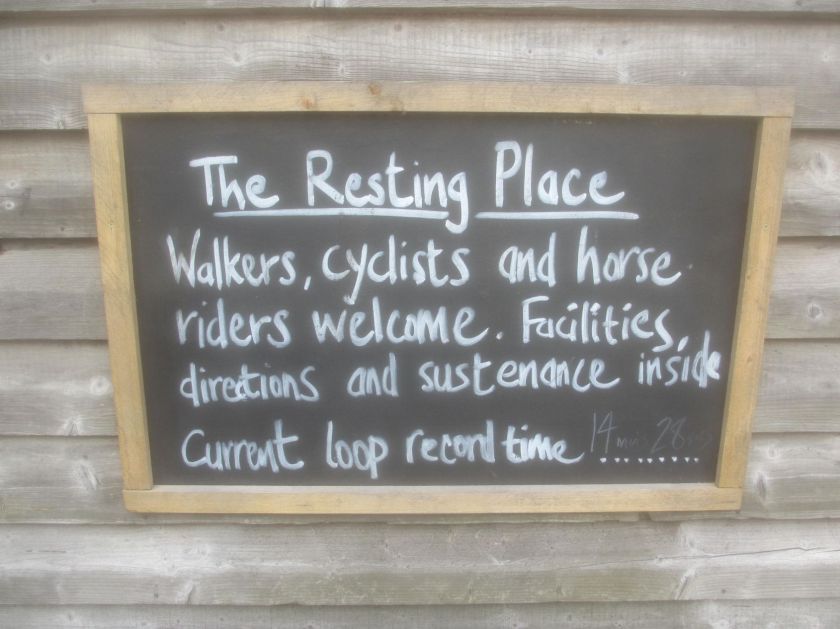 The Resting Place
Walkers, cyclists and horse
riders welcome. Facilities,
directions and sustenance inside
Current loop record time 14 mins 28 secs